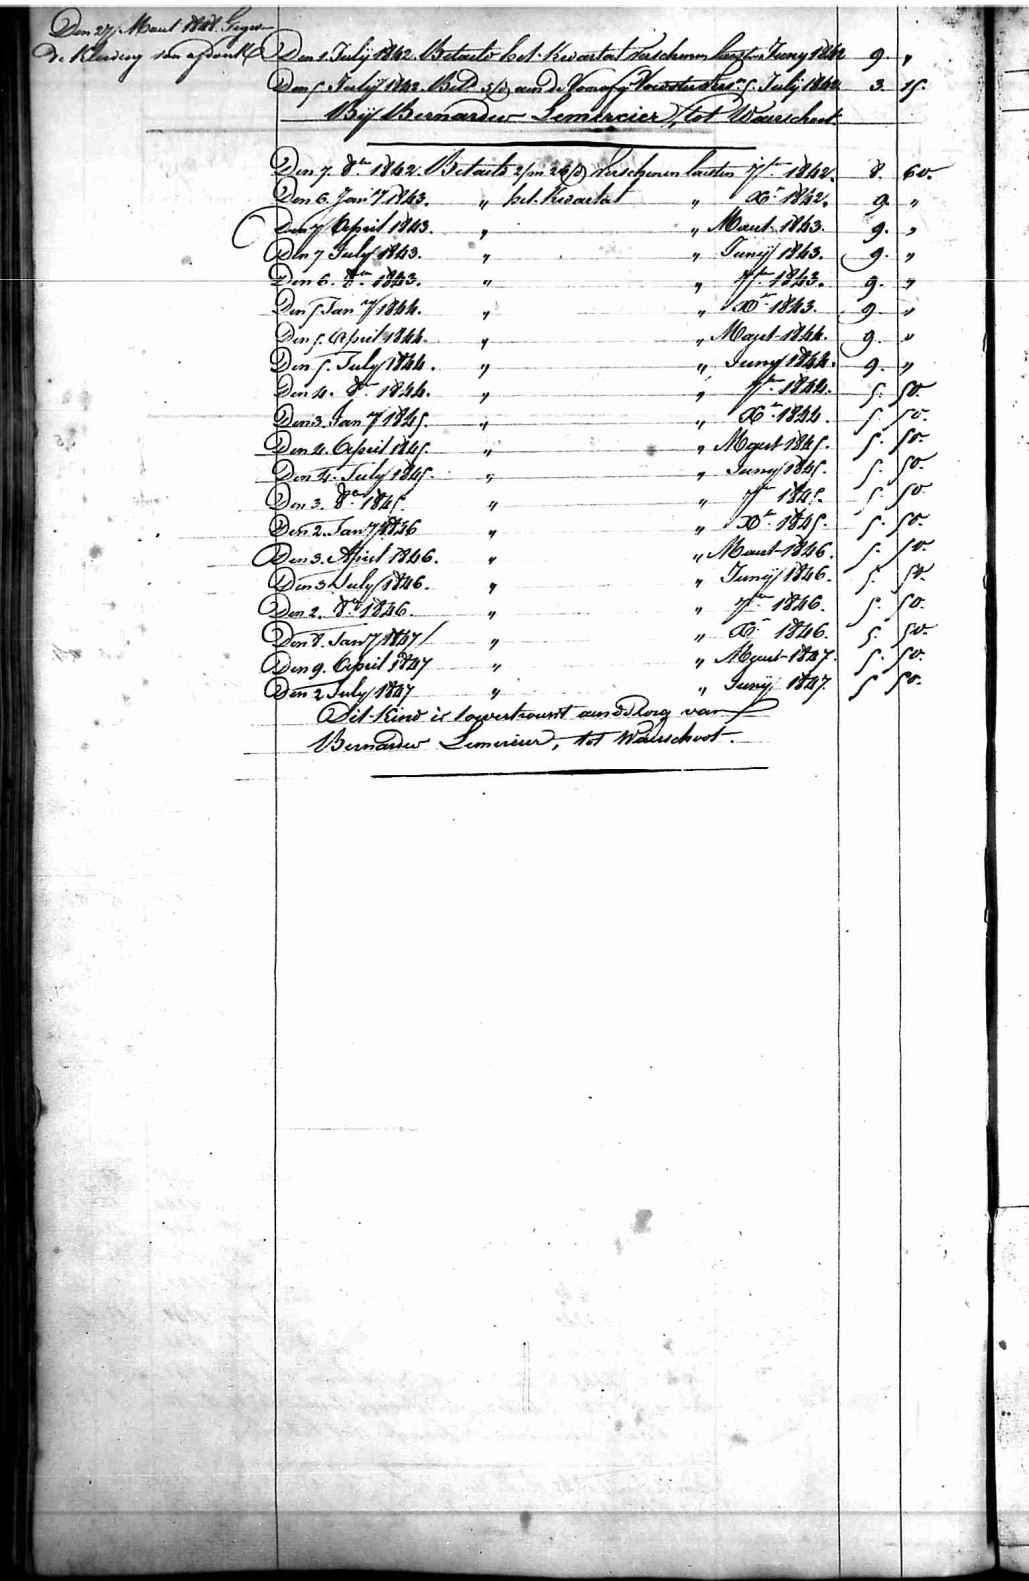 Den 27 Maart 1848 Gegev
de Kleeding van
Den 1. Julij 1842. Betaeld het Kwartal verschenen laesten Junij 1842 9. "
Den 5 Julij 1842. Bet.d 5/d aen de Voorst 5 Julij 1842 3. 15.
Bij Bernardus Lemercier, tot Waerschoot
Den 7. 8.er 1842. Betaeld 2/m 26/d verschenen laesten 7.er 1842. 8. 60.
Den 6. Jan.y 1843. " het Kwartal " X.er 1842. 9. "
Den 7 April 1843. " " Maart 1843. 9. "
Den 7 July 1843. " " Junij 1843. 9. "
Den 6. 8.er 1843. " " 7.er 1843. 9. "
Den 5 Jan.y 1844. " " X.er 1843. 9. "
Den 5. April 1844. " " Maert 1844. 9. "
Den 5. July 1844. " " Juny 1844. 9. "
Den 4. 8.er 1844. " " 7.er 1844. 5. 50.
Den 3. Jan.y 1845. " " X.er 1844. 5. 50.
Den 4. April 1845. " " Maert 1845. 5. 50.
Den 4. July 1845. " " Juny 1845. 5. 50.
Den 3. 8.er 1845. " " 7.er 1845. 5. 50
Den 2. Jan.y 1846 " " X.er 1845. 5. 50.
Den 3. April 1846. " " Maert 1846. 5. 50.
Den 3 July 1846. " " Junij 1846. 5. 50.
Den 2. 8.er 1846. " " 7.er 1846. 5. 50.
Den 8. Jan.y 1847 " " X.er 1846. 5. 50.
Den 9. April 1847 " " Maert 1847. 5. 50.
Den 2 July 1847 " " Junij 1847. 5 50.
Dit Kind is toevertrouwt aen d'zorg van
Bernardus Lemercier, tot Waerschoot.